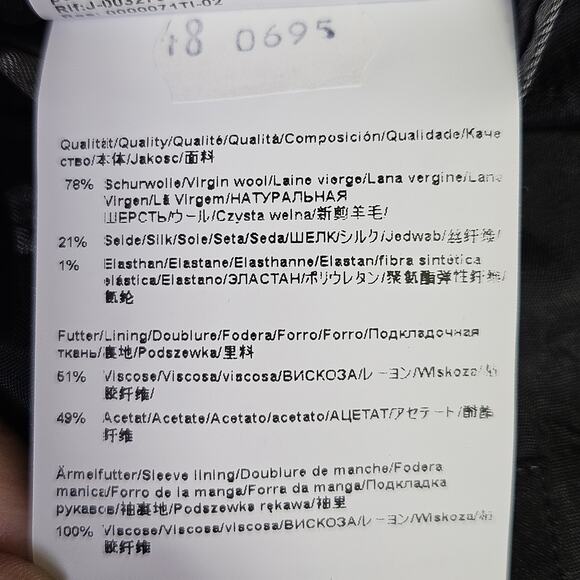 18 0695
Qualität/Quality/Qualité/Qualità/Composición/Qualidade/Каче
ство/本体/Jakosc/面料
78% Schurwolle/Virgin wool/Laine vierge/Lana vergine/Lana
Virgen/Lã Virgem/НАТУРАЛЬНАЯ
ШЕРСТЬ/ウール/Czysta welna/新剪羊毛/
21% Seide/Silk/Soie/Seta/Seda/ШЕЛК/シルク/Jedwab/丝纤维/
1% Elasthan/Elastane/Elasthanne/Elastan/fibra sintética
elástica/Elastano/ЭЛАСТАН/ポリウレタン/聚氨酯弹性纤维/
氨纶
Futter/Lining/Doublure/Fodera/Forro/Forro/Подкладочная
ткань/裏地/Podszewka/里料
51% Viscose/Viscosa/viscosa/ВИСКОЗА/レーヨン/Wiskoza/粘
胶纤维/
49% Acetat/Acetate/Acetato/acetato/АЦЕТАТ/アセテート/醋酯
纤维
Ärmelfutter/Sleeve lining/Doublure de manche/Fodera
manica/Forro de la manga/Forra da manga/Подкладка
рукавов/袖裏地/Podszewka rękawa/袖里
100% Viscose/Viscosa/viscosa/ВИСКОЗА/レーヨン/Wiskoza/粘
胶纤维